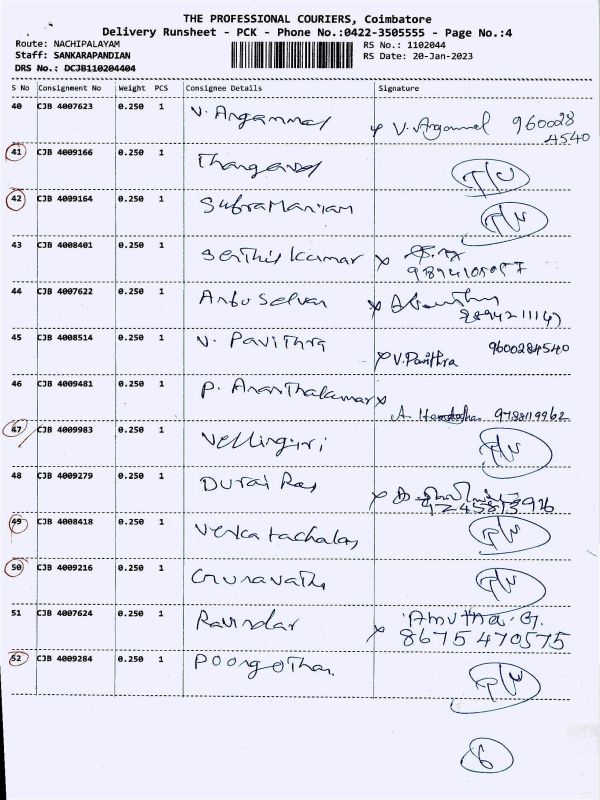 THE PROFESSIONAL COURIERS, Coimbatore
Delivery Runsheet - PCK - Phone No.:0422-3505555 - Page No.:4
Route: NACHIPALAYAM RS No.: 1102044
Staff: SANKARAPANDIAN RS Date: 20-Jan-2023
DRS No.: DCJB110204404
S No Consignment No Weight PCS Consignee Details Signature
40 CJB 4007623 0.250 1 V. Angammal x V. Angammal 960028
4540
41 CJB 4009166 0.250 1 Thangavel
42 CJB 4009164 0.250 1 Subramaniam
43 CJB 4008401 0.250 1 Senthil kumar x
44 CJB 4007622 0.250 1 Anbu Selvan x
9894211147
45 CJB 4008514 0.250 1 V. Pavithra 9600284540
x V. Pavithra
46 CJB 4009481 0.250 1 P. Ananthakumar x
A. 9788119962
47 CJB 4009983 0.250 1 Vellingiri
48 CJB 4009279 0.250 1 Durai Raj x
49 CJB 4008418 0.250 1 Venkatachalam
50 CJB 4009216 0.250 1 Gunavathi
51 CJB 4007624 0.250 1 Ravindar Amutha. G.
x 8675470575
52 CJB 4009284 0.250 1 Poongothai